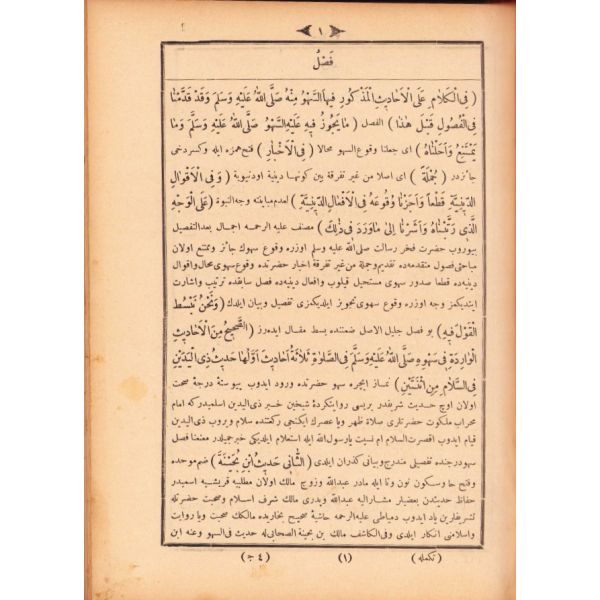 ١
فَصْلٌ
( فِى الْكَلَامِ عَلَى الْاَحَادِيثِ الْمَذْكُورِ فِيهَا السَّهْوُ مِنْهُ صَلَّى اللّٰهُ عَلَيْهِ وَسَلَّمَ وَقَدْ قَدَّمْنَا
فِى الْفُصُولِ قَبْلَ هٰذَا ) الفصل ( مَا يَجُوزُ فِيهِ عَلَيْهِ السَّهْوُ صَلَّى اللّٰهُ عَلَيْهِ وَسَلَّمَ وَمَا
يَمْتَنِعُ وَاَحَلْنَاهُ ) اى جعلنا وقوع السهو محالا ( فِى الْاَخْبَارِ ) فتح همزه ايله وكسردخى
جائزدر ( جُمْلَةً ) اى اصلا من غير تفرقة بين كونها دينية اودنيوية ( وَفِى الْاَقْوَالِ
الدِّينِيَّةِ قَطْعًا وَاَجَزْنَا وُقُوعَهُ فِى الْاَفْعَالِ الدِّينِيَّةِ ) لعدم مباينته وجه النبوة ( عَلَى الْوَجْهِ
الَّذِى رَتَّبْنَاهُ وَاَشَرْنَا اِلَى مَاوَرَدَ فِى ذٰلِكَ ) مصنف عليه الرحمه اجمال بعد التفصيل
بيوروب حضرت فخر رسالت صلى الله عليه وسلم اوزره وقوع سهوك جائز وممتنع اولان
مباحثى فصول متقدمه ده تقديم وجملة من غير تفرقة اخبار حضرتده وقوع سهوى محال واقوال
دينيه ده قطعا صدور سهوى مستحيل قيلوب وافعال دينيه ده فصل سابقده ترتيب واشارت
ايتديكمز وجه اوزره وقوع سهوى تجويز ايلديكمزى تفصيل وبيان ايلدك ( وَنَحْنُ نَبْسُطُ
الْقَوْلَ فِيهِ ) بو فصل جليل الاصل ضمننده بسط مقال ايده رز ( اَلصَّحِيحُ مِنَ الْاَحَادِيثِ
الْوَارِدَةِ فِى سَهْوِهِ صَلَّى اللّٰهُ عَلَيْهِ وَسَلَّمَ فِى الصَّلٰوةِ ثَلَاثَةُ اَحَادِيثَ اَوَّلُهَا حَدِيثُ ذِى الْيَدَيْنِ
فِى السَّلَامِ مِنِ اثْنَتَيْنِ ) نماز ايچره سهو حضرتده ورود ايدوب پيوسته درجهٔ صحت
اولان اوچ حديث شريفدر بريسى روايتكردهٔ شيخين خبر ذى اليدين اسلميدركه امام
محراب ملكوت حضرتلرى صلاة ظهر ويا عصرك ايكنجى ركعتنده سلام ويروب ذى اليدين
قيام ايدوب اقصرت السلام ام نسيت يارسول الله ايله استعلام ايلديكى خبرجميلدر معنعنا فصل
سهودرجنده تفصيلى مندرج وبيانى كذران ايلدى ( اَلثَّانِى حَدِيثُ ابْنِ بُحَيْنَةَ ) ضم موحده
وفتح حا وسكون نون وتا ايله مادر عبدالله وزوج مالك اولان مطلبيه قريشيه اسميدر
حفاظ حديثدن بعضيلر مشاراليه عبدالله وپدرى مالك شرف اسلام وصحبت حضرتله
تشريفلرين ياد ايدوب دمياطى عليه الرحمه حاشيهٔ صحيح بخاريده مالكك صحبت ويا روايت
واسلامنى انكار ايلدى وفى الكاشف مالك بن بحينة الصحابى له حديث فى السهو وعنه ابن
( تكمله ) (١) ( ٤ ج )